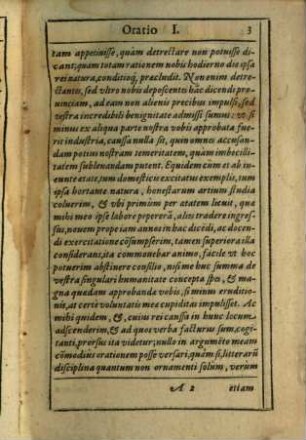 Oratio I. 3
tam appetiuisse, quàm detrectare non potuisse di-
cant; quam totam rationem nobis hodierno die ipsa
rei natura, conditioq́, præcludit. Non enim detre-
ctantes, sed vltro nobis deposcentes hãc dicendi pro-
uinciam, ad eam non alienis precibus impulsi, sed
vestra incredibili benignitate admissi sumus: vt si
minus ex aliqua parte nostra vobis approbata fue-
rit industria, caussa nulla sit, quin omnes accusan-
dam potius nostram temeritatem, quàm imbecilli-
tatem subleuandam putent. Equidem cùm et ab in-
eunte ætate, tum domesticis excitatus exemplis, tum
ipsa hortante natura, honestarum artium studia
coluerim, & vbi primùm per ætatem licuit, quæ
mihi meo ipse labore pepererã, alijs tradere ingres-
sus, neuem prope iam annos in hac dicēdi, ac docen-
di exercitatione cõsumpserim, tamen superiora illa
considerans, ita commouebar animo, facile vt hoc
potuerim abstinere consilio, nisi me huc summa de
vestra singulari humanitate concepta spes, & ma-
gna quædam approbanda vobis, si minus eruditio-
nis, at certè voluntatis meæ cupiditas impulisset. Ac
mihi quidem, &, cuius rei caussa in hunc locum
adscenderim, & ad quos verba facturus sum, cogi-
tanti, prorsus ita videtur; nullo in argumēto meam
cõmodius orationem posse versari, quàm si, litterarũ
disciplina quantum non ornamenti solùm, verum
A 2 etiam